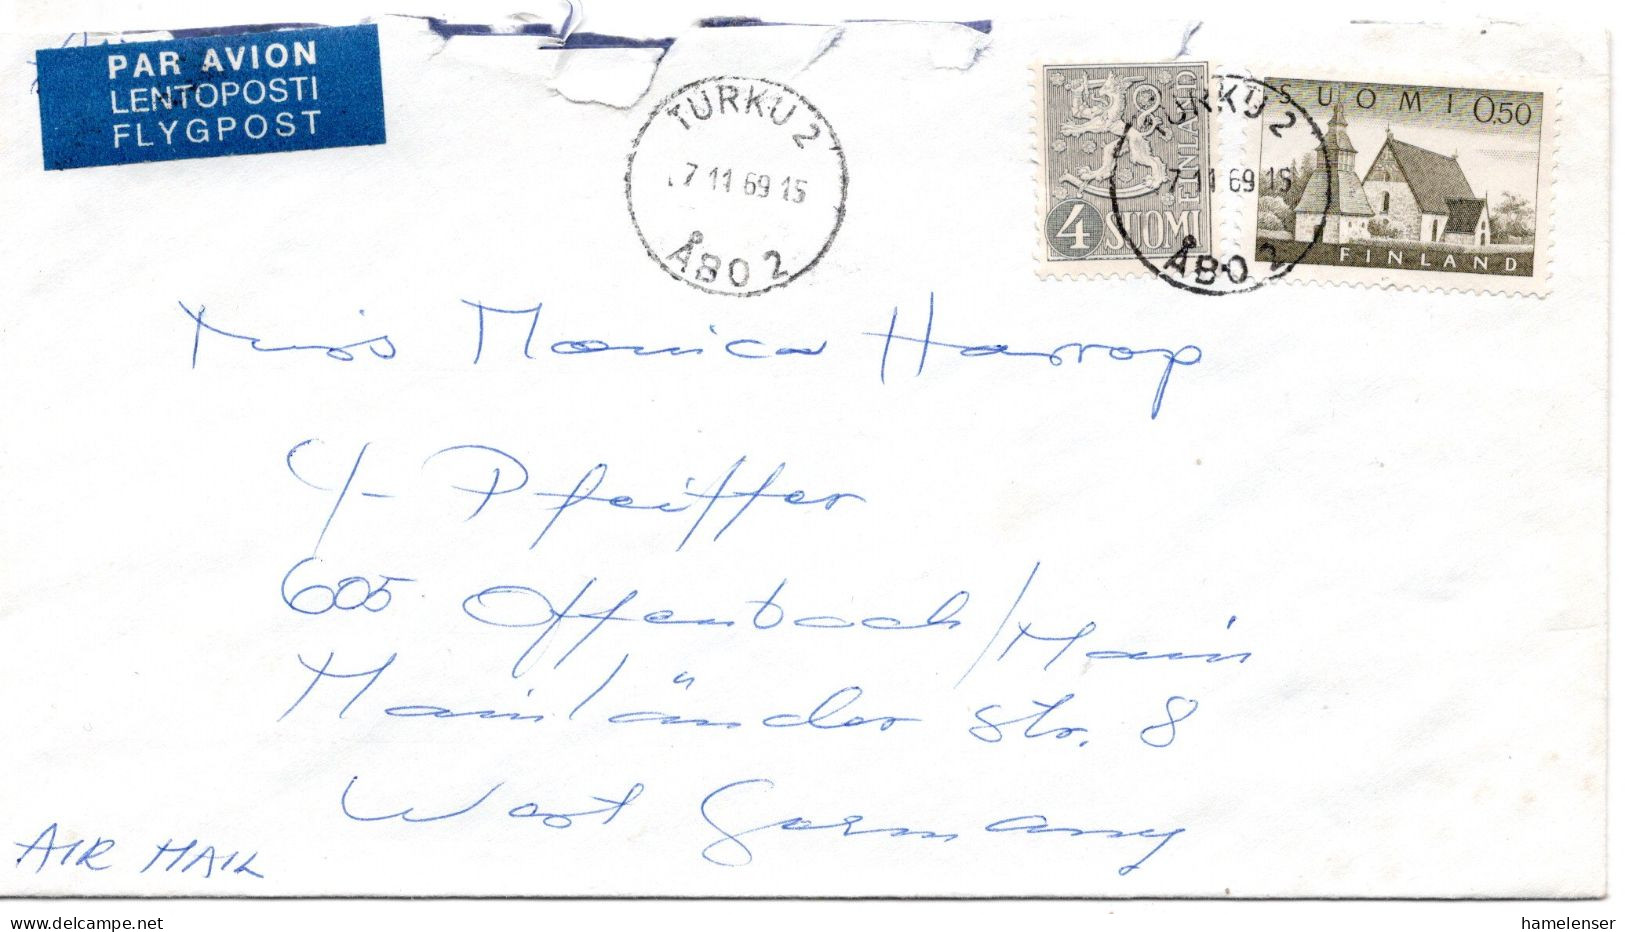 PAR AVION
LENTOPOSTI
FLYGPOST
TURKU 2
7 11 69 15
ÅBO 2
4 SUOMI
FINLAND
TURKU 2
7 11 69 15
ÅBO 2
SUOMI 0,50
FINLAND
Miss Monica Harrop
℅ Pfeiffer
605 Offenbach/Main
Mainländer Str. 8
West Germany
AIR MAIL
www.delcampe.net
hamelenser